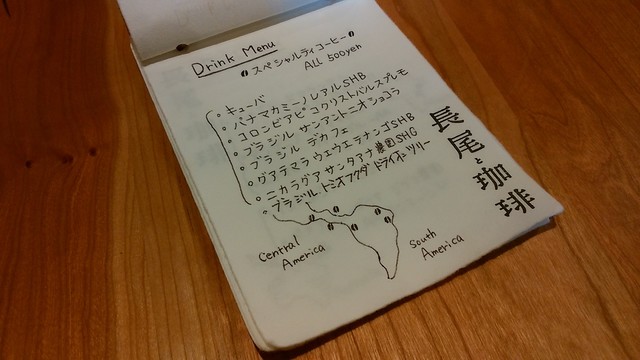 Drink Menu
スペシャルティコーヒー
ALL 500yen
・キューバ
・パナマカミーノレアルSHB
・コロンビアピコクリストバルスプレモ
・ブラジル サンアントニオショコラ
・ブラジル デカフェ
・グアテマラ ウェウエテナンゴSHB
・ニカラグア サンタアナ農園SHG
・ブラジル トミオフクダ ドライオンツリー
長尾と珈琲
Central
America
South
America